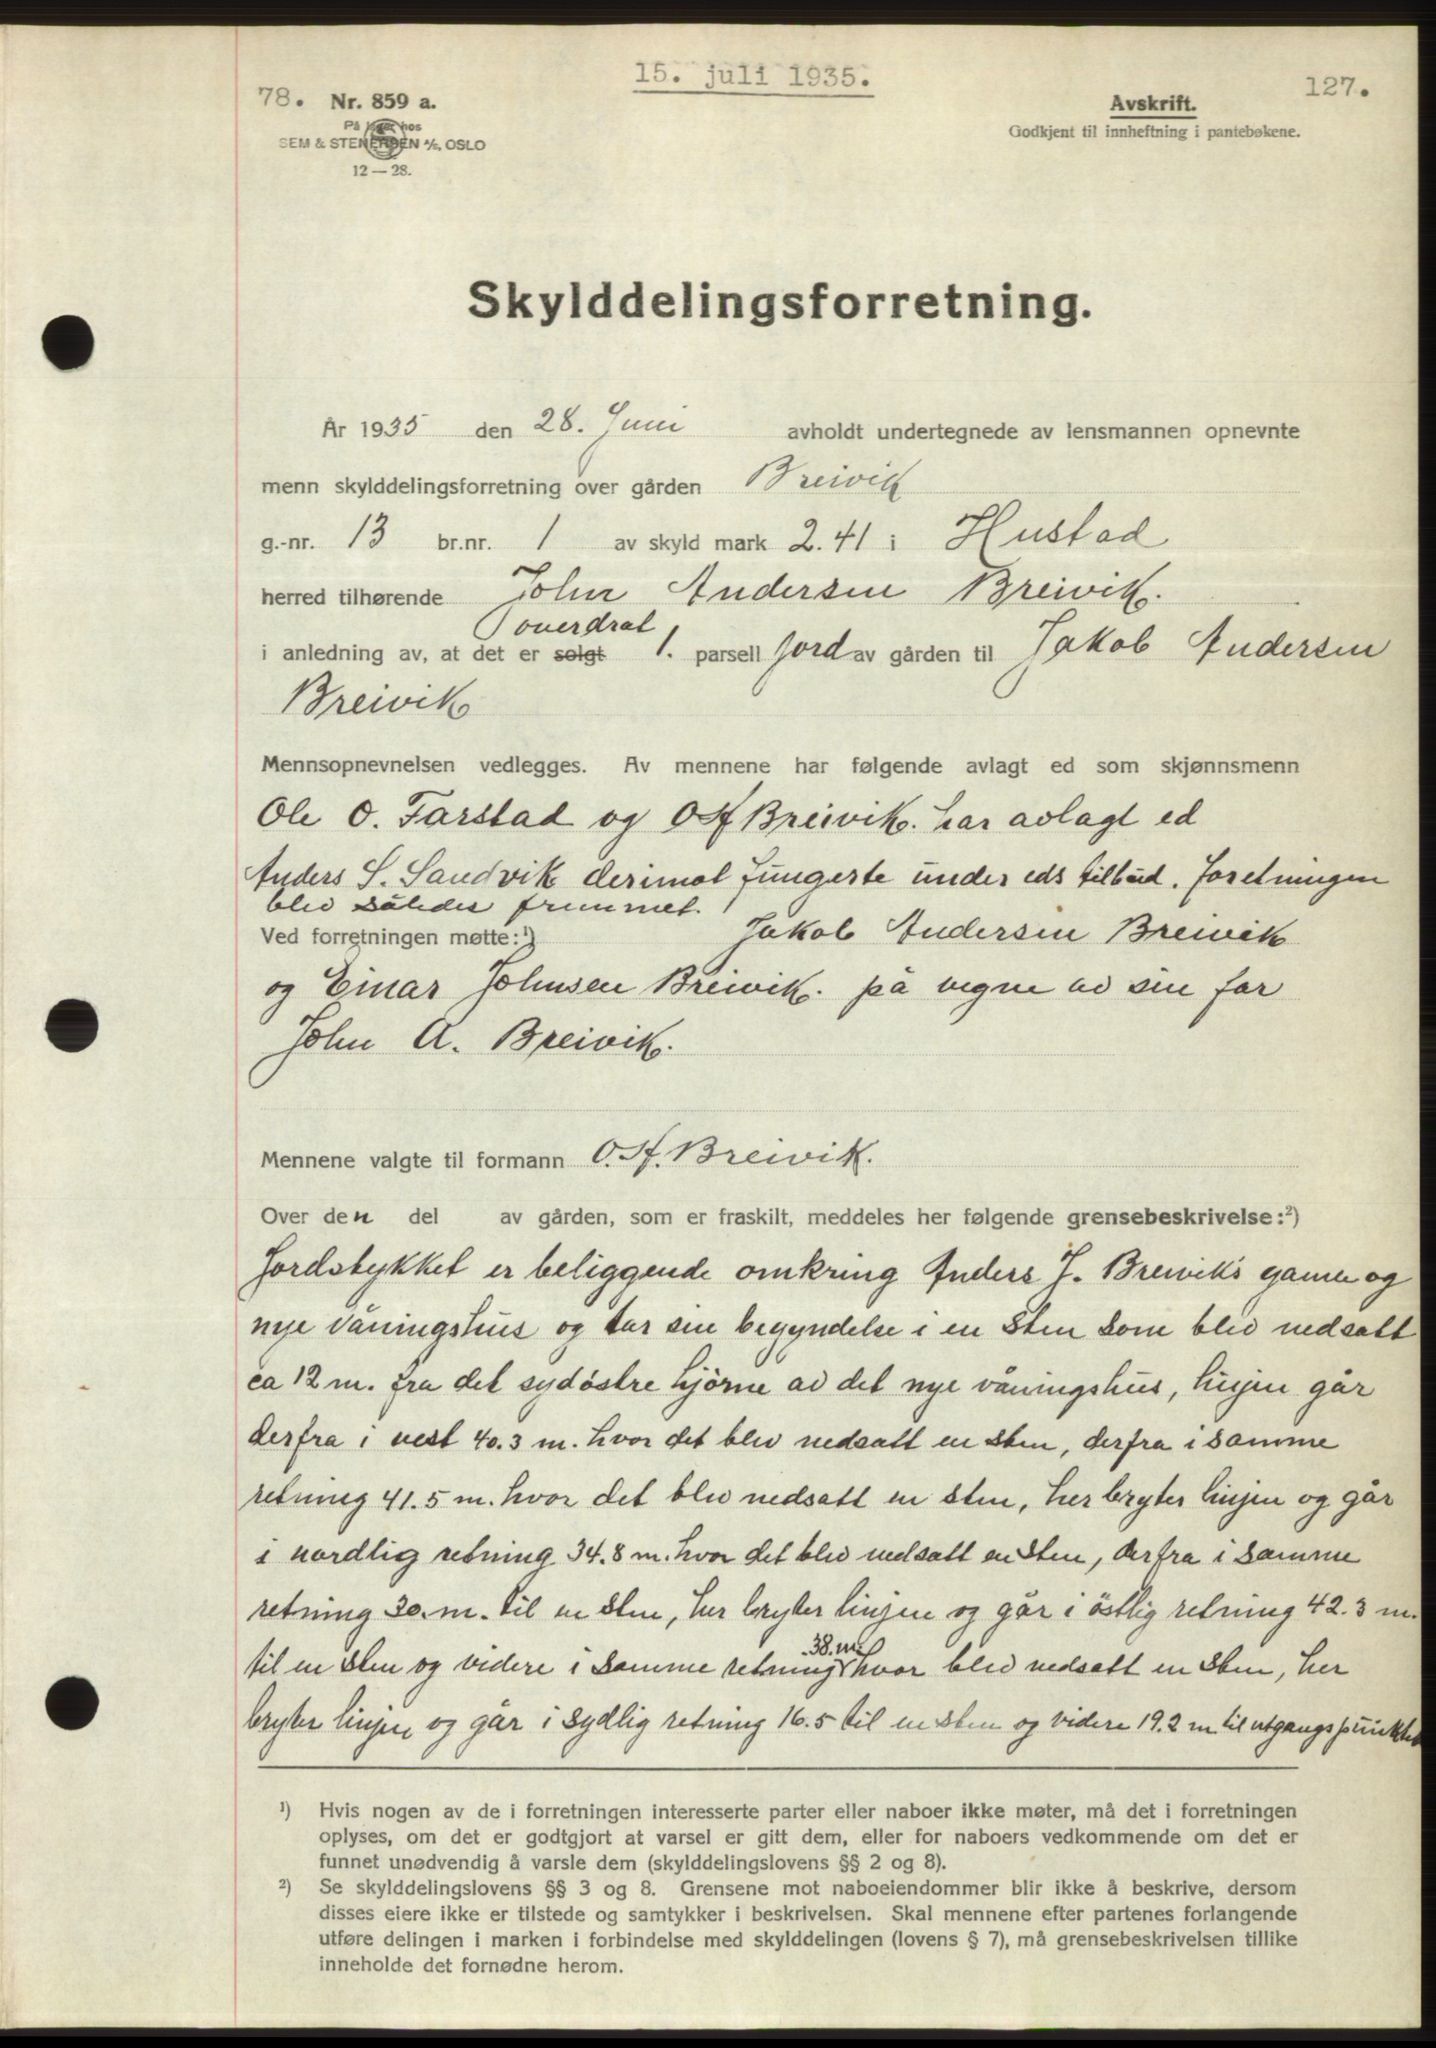 15. juli 1935.
127.
78. Nr. 859 a.
På lager hos
SEM & STENERSEN A/S, OSLO
12 — 28.
Avskrift.
Godkjent til innheftning i pantebøkene.
Skylddelingsforretning.
År 1935 den 28. Juni avholdt undertegnede av lensmannen opnevnte
menn skylddelingsforretning over gården Breivik
g.-nr. 13 br.nr. 1 av skyld mark 2.41 i Hustad
herred tilhørende John Andersen Breivik.
overdrat
i anledning av, at det er solgt 1. parsell jord av gården til Jakob Andersen
Breivik
Mennsopnevnelsen vedlegges. Av mennene har følgende avlagt ed som skjønnsmenn
Ole O. Farstad og O. A. Breivik. har avlagt ed
Anders S. Sandvik derimot fungerte under eds tilbud. foretningen
blev således fremmet.
Ved forretningen møtte:¹) Jakob Andersen Breivik
og Einar Johnsen Breivik. på vegne av sin far
John A. Breivik.
Mennene valgte til formann O. A. Breivik.
Over den del av gården, som er fraskilt, meddeles her følgende grensebeskrivelse:²)
Jordstykket er beliggende omkring Anders J. Breivik's gamle og
nye våningshus og tar sin begyndelse i en sten som blev nedsatt
ca 12 m. fra det sydöstre hjörne av det nye våningshus, linjen går
derfra i vest 40.3 m. hvor det blev nedsatt en sten, derfra i samme
retning 41.5 m. hvor det blev nedsatt en sten, her bryter linjen og går
i nordlig retning 34.8 m. hvor det blev nedsatt en sten, derfra i samme
retning 30. m. til en sten, her bryter linjen og går i östlig retning 42.3 m.
til en sten og videre i samme retning 38. m. hvor blev nedsatt en sten, her
bryter linjen og går i sydlig retning 16.5 til en sten og videre 19.2 m til utgangspunktet
¹) Hvis nogen av de i forretningen interesserte parter eller naboer ikke møter, må det i forretningen
oplyses, om det er godtgjort at varsel er gitt dem, eller for naboers vedkommende om det er
funnet unødvendig å varsle dem (skylddelingslovens §§ 2 og 8).
²) Se skylddelingslovens §§ 3 og 8. Grensene mot naboeiendommer blir ikke å beskrive, dersom
disses eiere ikke er tilstede og samtykker i beskrivelsen. Skal mennene efter partenes forlangende
utføre delingen i marken i forbindelse med skylddelingen (lovens § 7), må grensebeskrivelsen tillike
inneholde det fornødne herom.